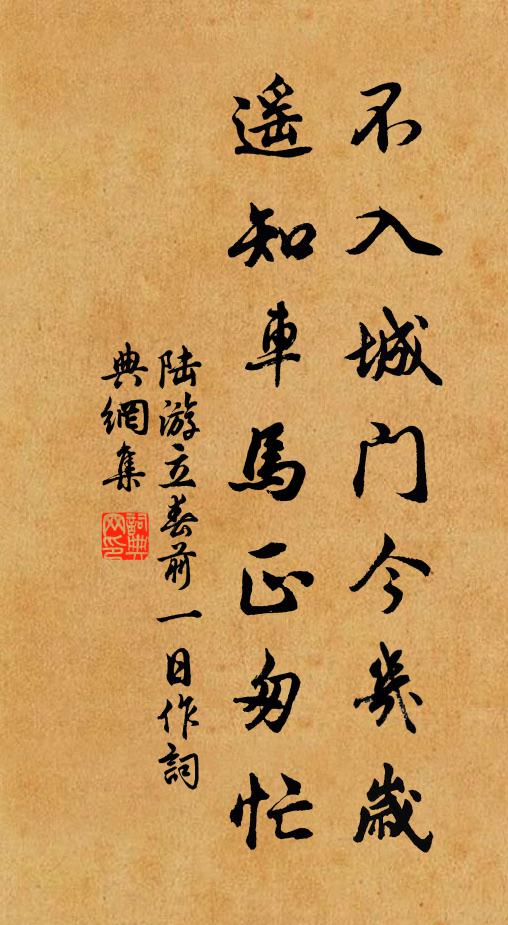 不入城门今幾歲
遥知車馬正匆忙
陆游立春前一日作詞
典網集
詞典
网印